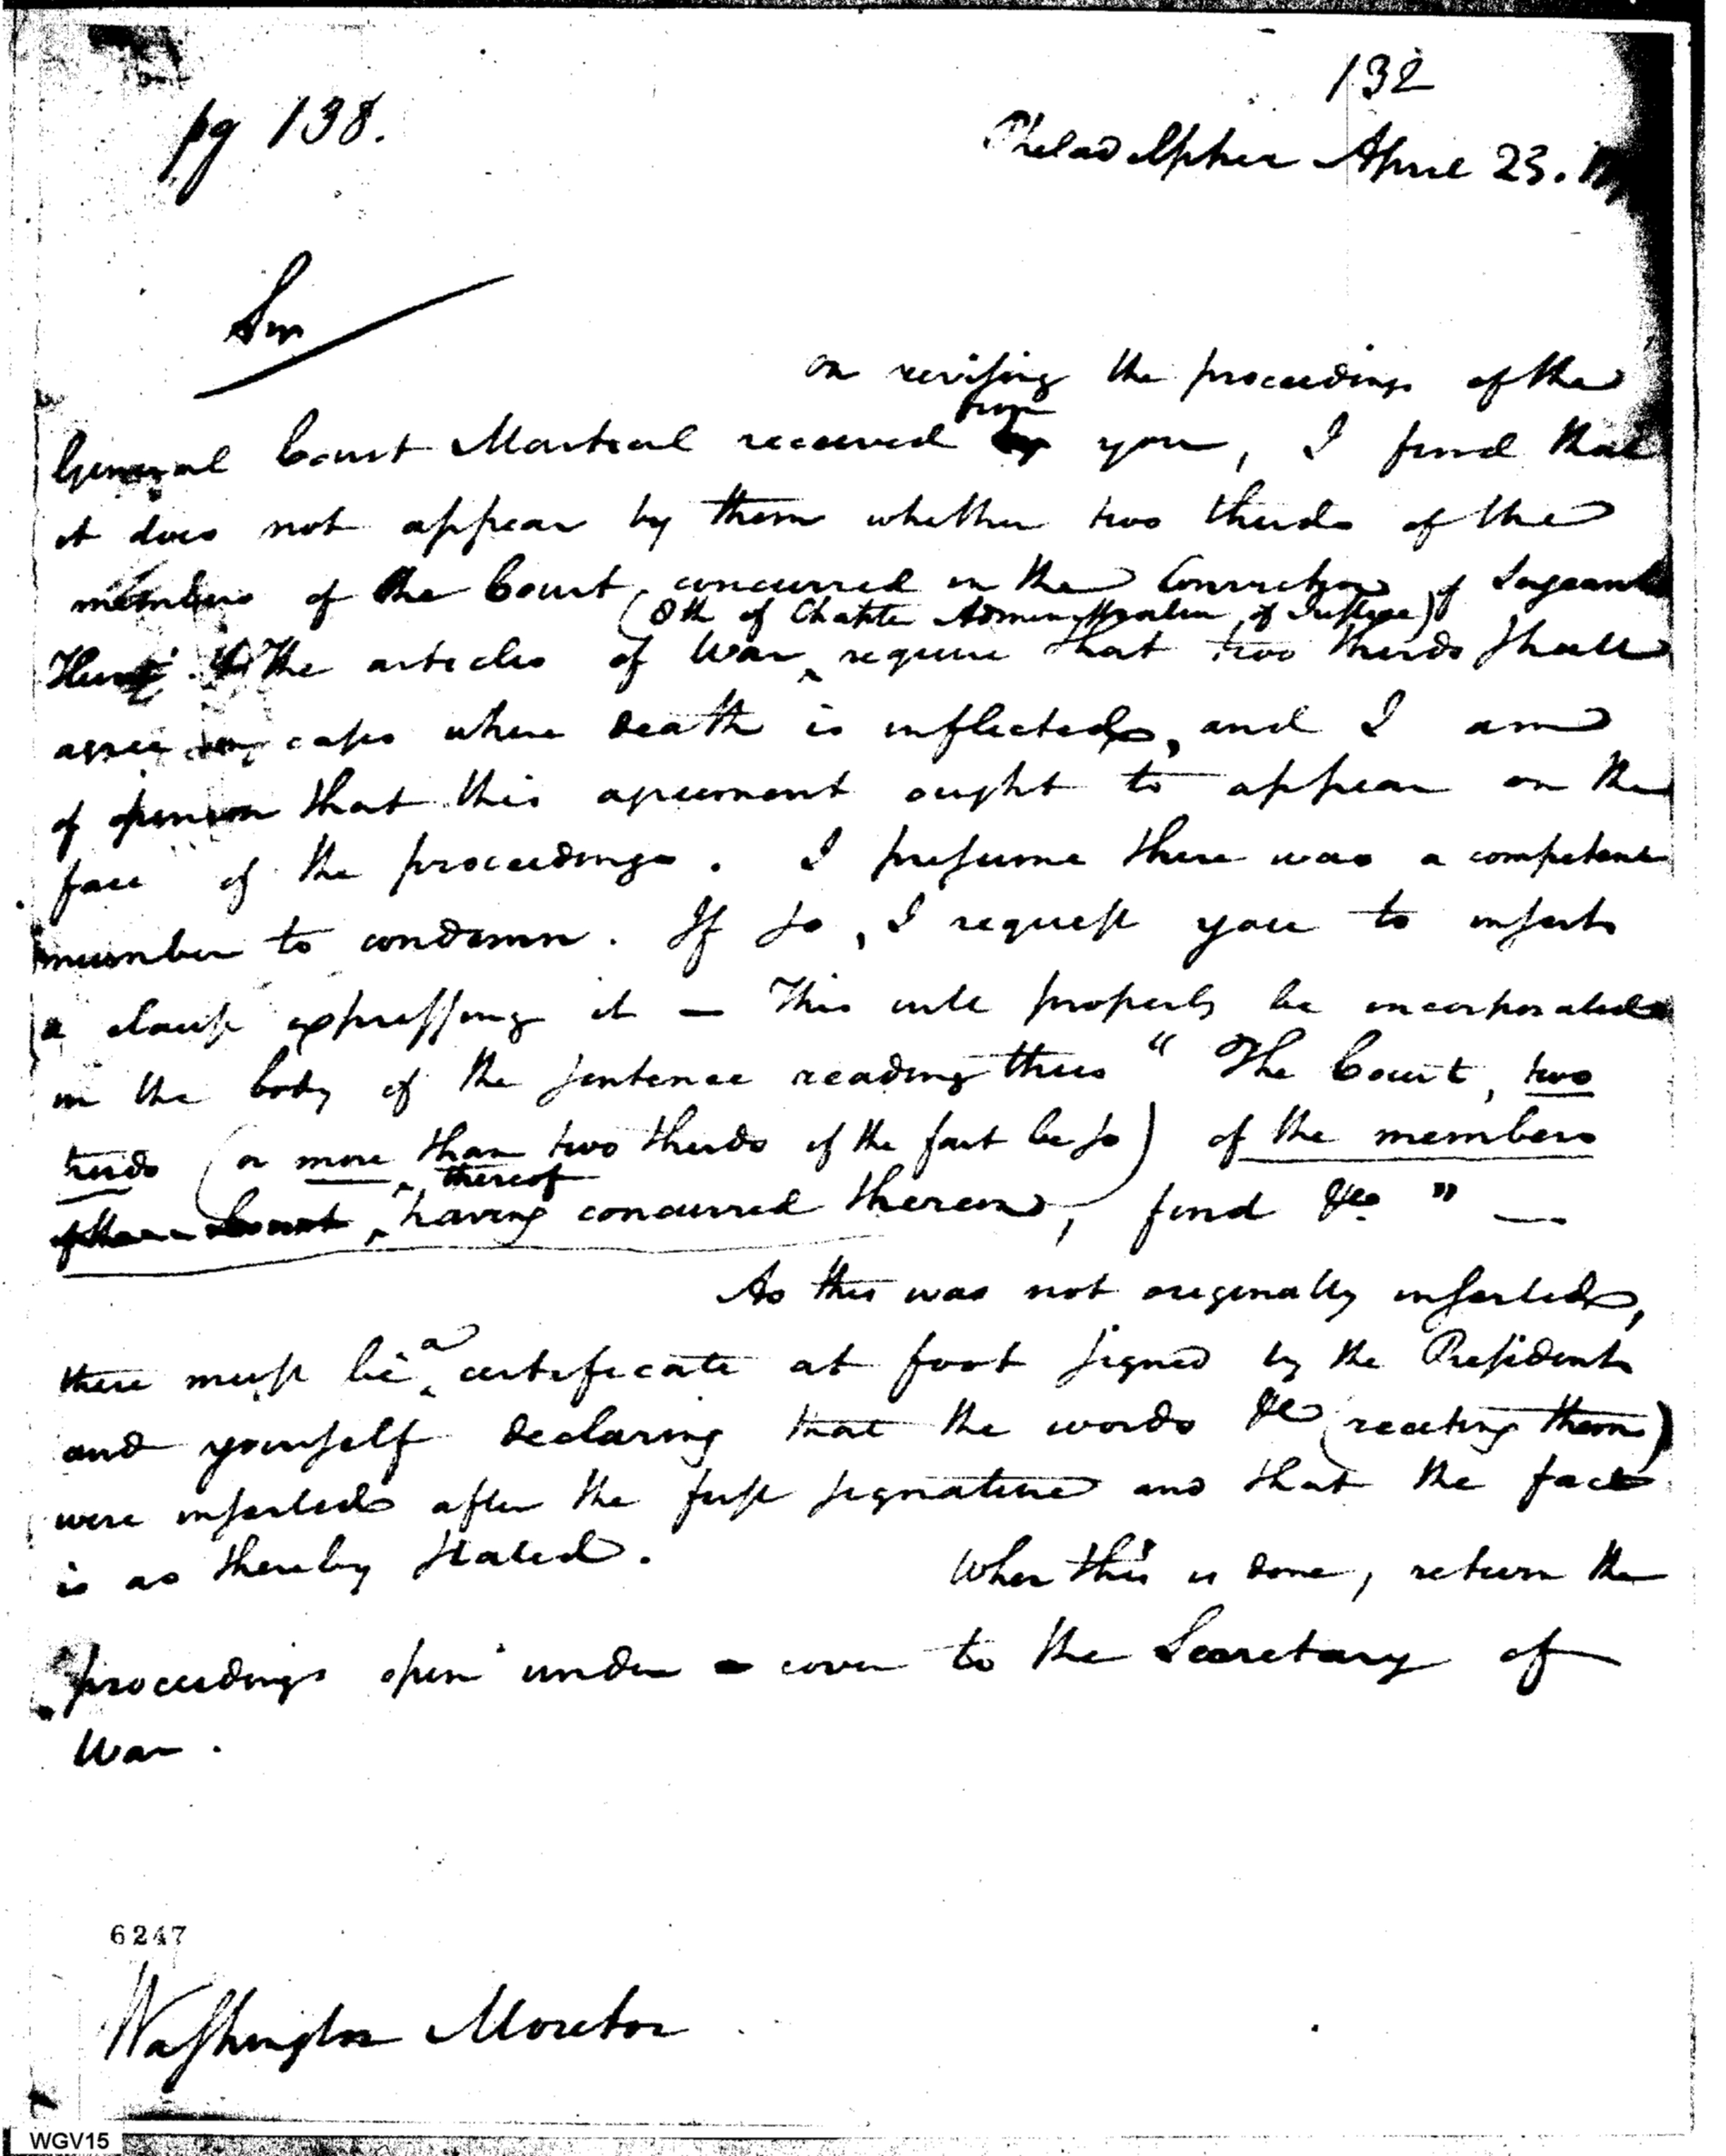 132
pg 138.
Philadelphia April 23. 17
Sir
on revising the proceedings of the
from
General Court Martial received by you, I find that
it does not appear by them whether two thirds of the
members of the Court, concurred in the Conviction of Sergeant
(8th of Chapter Administration of Justice)
Hunt. The articles of War require that two thirds shall
agree in cases where death is inflicted, and I am
of opinion that this agreement ought to appear on the
face of the proceedings. I presume there was a competent
number to condemn. If so, I request you to insert
a clause expressing it — This will properly be incorporated
in the body of the sentence reading thus " The Court, two
thirds (or more than two thirds if the fact be so) of the members
thereof
of the Court having concurred therein, find &c " —
As this was not originally inserted,
a
there must be certificate at foot signed by the President
and yourself declaring that the words &c (reciting them)
were inserted after the first signature and that the fact
is as thereby stated. When this is done, return the
proceedings open under a cover to the Secretary of
War.
6247
Washington Moreton
WGV15